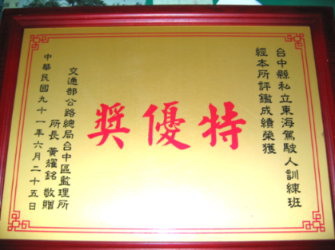 台中縣私立東海駕駛人訓練班
經本所評鑑成績榮獲
特優獎
交通部公路總局台中區監理所
所長 黃耀銘 敬贈
中華民國九十一年六月二十五日